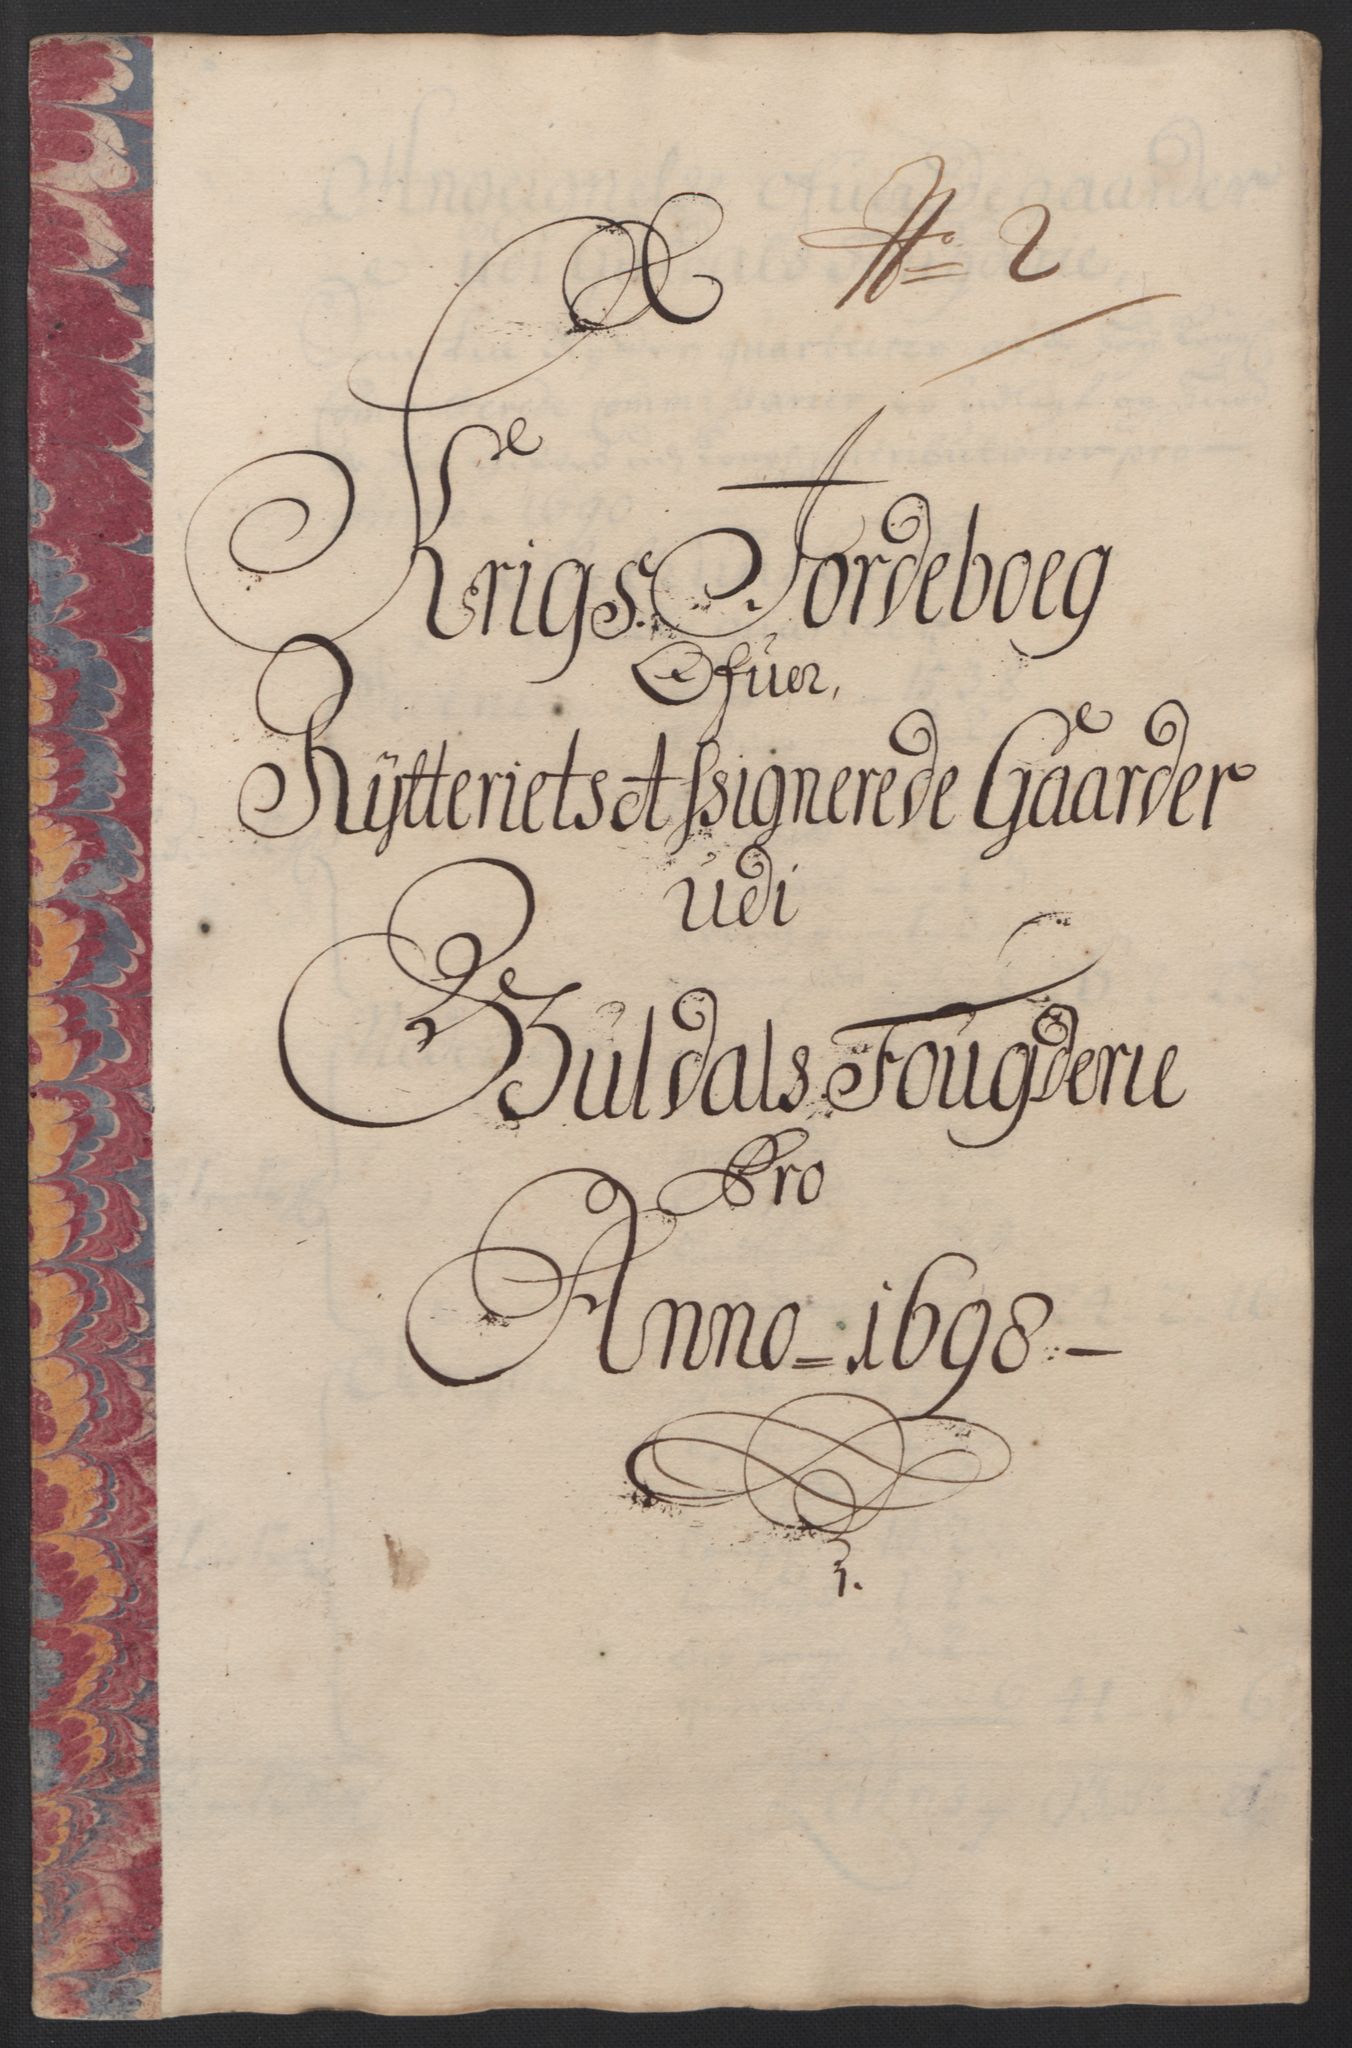 No 2
Krigs Jordeboeg
Ofuer,
Rÿtteriets Assignerede Gaarder
udi
Guldals Fougderie
Pro
Anno = 1698 -